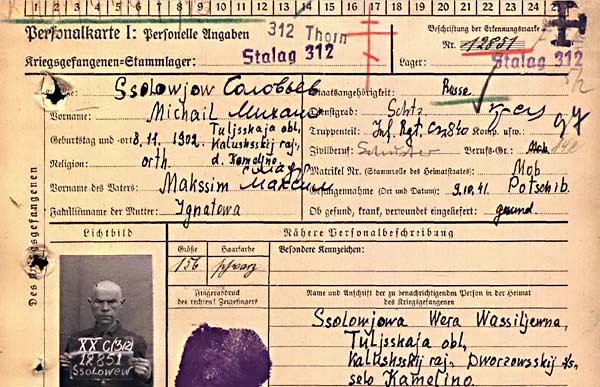 1 2 3 4 5 6 7 8 9 10 11 12 13 14 15 16 17 18 19 20 21 22 23 24 25
Personalkarte I: Personelle Angaben
312 Thorn
Beschriftung der Erkennungsmarke
Nr. 12851
Kriegsgefangenen-Stammlager: Stalag 312
Lager: Stalag 312
Name: Ssolowjow Соловьев
Staatsangehörigkeit: Russe
Vorname: Michail
Dienstgrad: Schtz
Geburtstag und -ort: 8.11.1902. Tuljsskaja obl., Kalushsskij raj., d. Kamelino.
Truppenteil: Inf. Rgt. Komp. usw.
Zivilberuf: Schuster Berufs-Gr.:
Religion: orth.
Matrikel Nr. (Stammrolle des Heimatstaates): Mob
Vorname des Vaters: Makssim Максим
Gefangennahme (Ort und Datum): 9.10.41. Potschib.
Familienname der Mutter: Ignatowa
Ob gesund, krank, verwundet eingeliefert: gesund.
Des Kriegsgefangenen
Lichtbild
Nähere Personalbeschreibung
Größe
Haarfarbe
Besondere Kennzeichen:
156
schwarz
Fingerabdruck
des rechten! Zeigefingers
Name und Anschrift der zu benachrichtigenden Person in der Heimat
des Kriegsgefangenen
Ssolowjowa Wera Wassiljewna,
Tuljsskaja obl,
Kalushsskij raj., Dworzowsskij s/s,
selo Kamelino.
XX C(312)
12851
Ssolowew